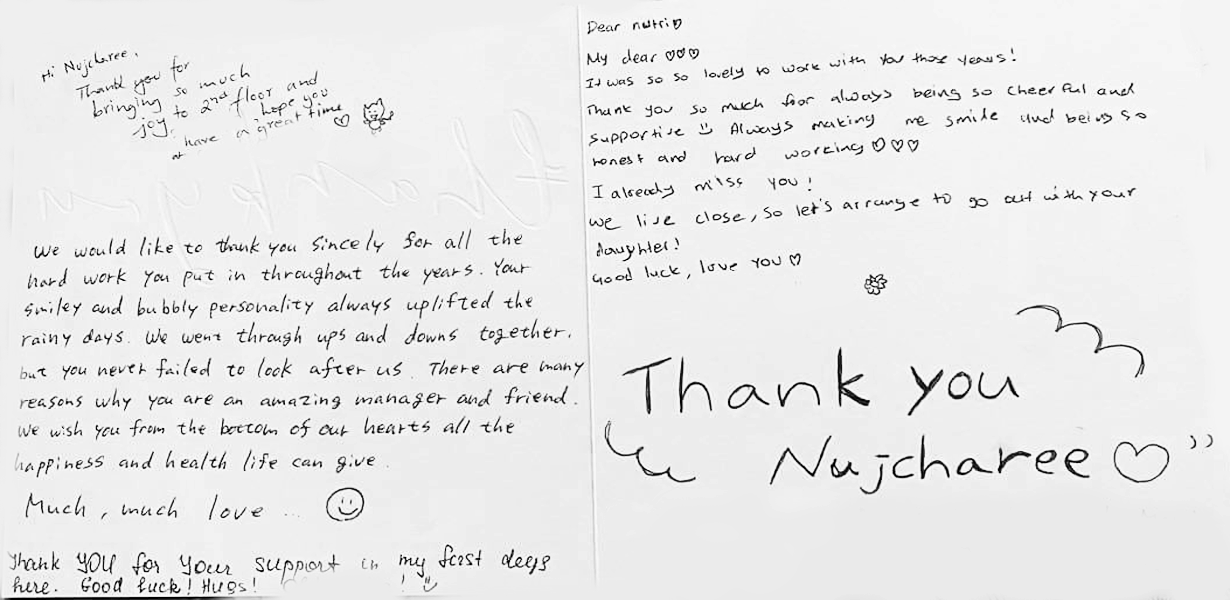 Hi Nujcharee,
Thank you for
bringing so much
joy to 2nd floor and
hope you
have a great time
at
We would like to thank you sincely for all the
hard work you put in throughout the years. Your
smiley and bubbly personality always uplifted the
rainy days. We went through ups and downs together,
but you never failed to look after us. There are many
reasons why you are an amazing manager and friend.
We wish you from the bottom of our hearts all the
happiness and health life can give.
Much, much love ... ☺
Thank YOU for your support in my first days
here. Good luck! Hugs! ! ☺
Dear nutri♡
My dear ♡♡♡
It was so so lovely to work with you those years!
Thank you so much for always being so cheerful and
supportive ☺ Always making me smile and being so
honest and hard working ♡♡♡
I already miss you!
We live close, so let's arrange to go out with your
daughter!
Good luck, love you ♡
Thank you
Nujcharee ♡